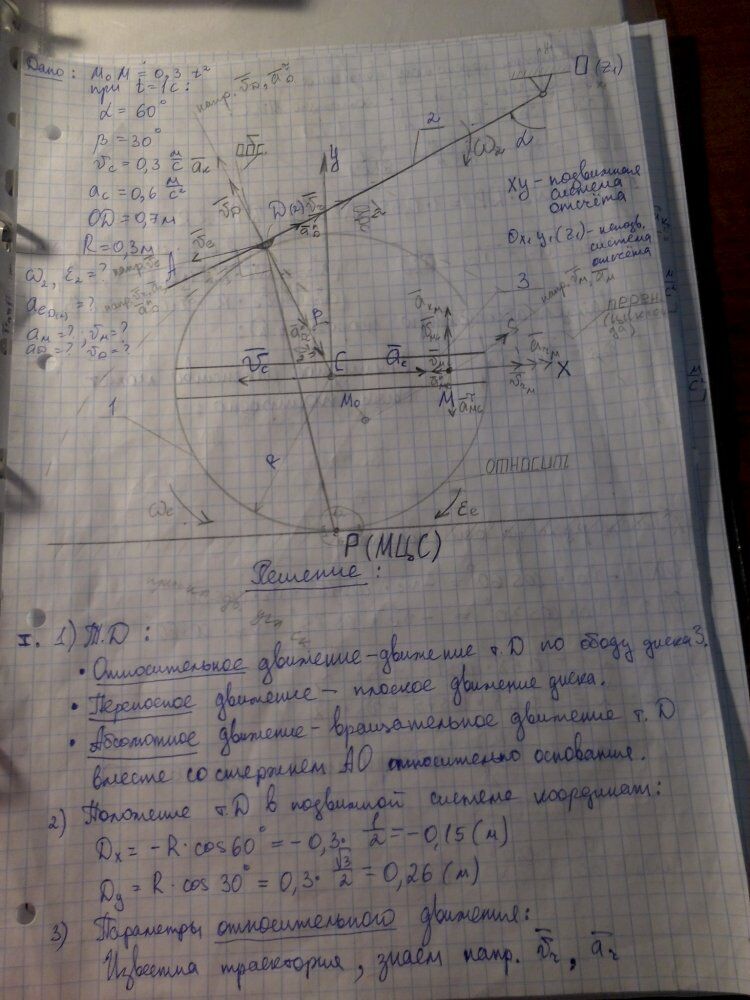 Дано: M₀M = 0,3 t²
при t = 1с:
α = 60°
β = 30°
v̄c = 0,3 м/с
ac = 0,6 м/с²
OD = 0,7м
R = 0,3м
ω₂, ε₂ = ?
aм = ?, vм = ?
aD = ? vD = ?
O(z₁)
2
ω₂
α
y
āc
v̄D
D(z)
v̄c
A
xy – подвижная
система
отсчёта
Ox₁y₁(z₁) – неподв.
система
отсчёта
3
β
C
v̄c
āc
M₀
M
X
1
R
ОТНОСИТ
ωe
εe
P(МЦС)
Решение:
I. 1) Т.D:
• Относительное движение – движение т. D по ободу диска 3.
• Переносное движение – плоское движение диска.
• Абсолютное движение – вращательное движение т. D
вместе со стержнем AO относительно основания.
2) Положение т. D в подвижной системе координат:
Dx = -R·cos60° = -0,3· 1/2 = -0,15 (м)
Dy = R·cos30° = 0,3· √3/2 = 0,26 (м)
3) Параметры относительного движения:
Известна траектория, знаем напр. v̄r, ār